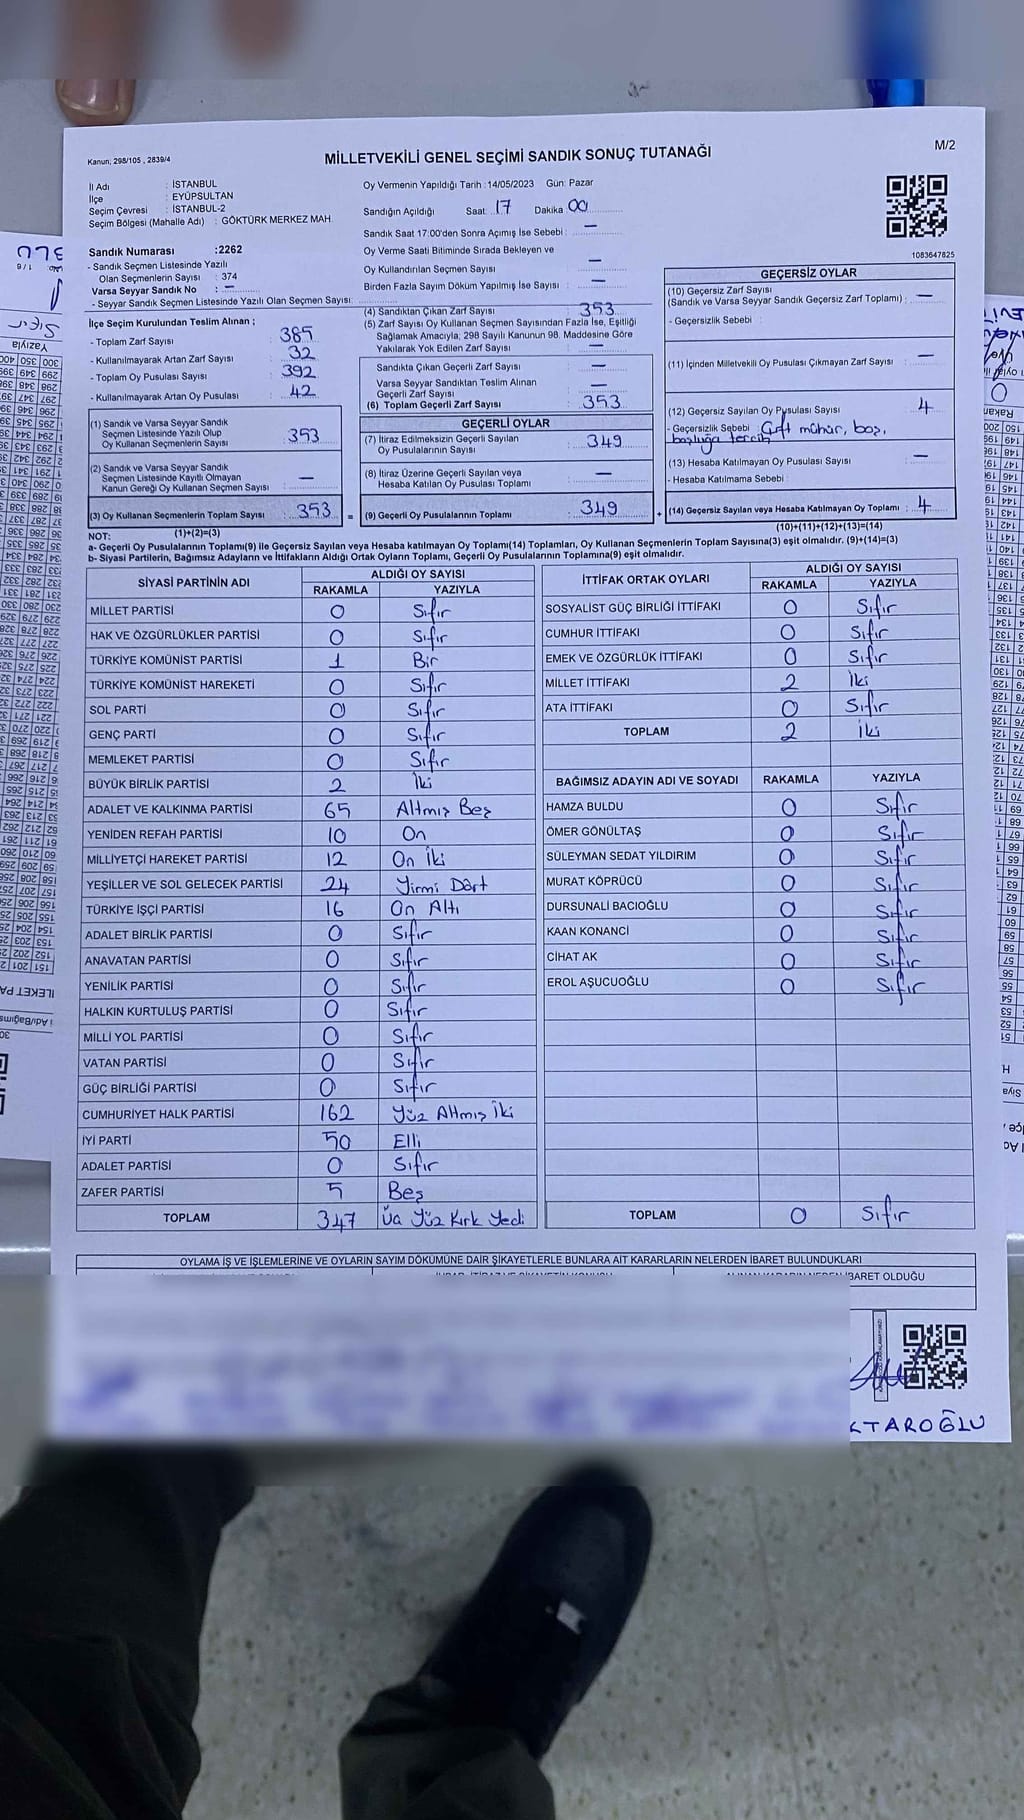 Kanun, 298/105 , 2839/4
MİLLETVEKİLİ GENEL SEÇİMİ SANDIK SONUÇ TUTANAĞI
M/2
İl Adı : İSTANBUL
İlçe : EYÜPSULTAN
Seçim Çevresi : İSTANBUL-2
Seçim Bölgesi (Mahalle Adı) : GÖKTÜRK MERKEZ MAH.
Oy Vermenin Yapıldığı Tarih :14/05/2023 Gün: Pazar
Sandığın Açıldığı Saat: 17 Dakika 00
Sandık Saat 17:00'den Sonra Açımış İse Sebebi : —
Oy Verme Saati Bitiminde Sırada Bekleyen ve
Oy Kullandırılan Seçmen Sayısı : —
Birden Fazla Sayım Döküm Yapılmış İse Sayısı : —
1083647825
Sandık Numarası :2262
- Sandık Seçmen Listesinde Yazılı
Olan Seçmenlerin Sayısı : 374
Varsa Seyyar Sandık No : —
- Seyyar Sandık Seçmen Listesinde Yazılı Olan Seçmen Sayısı:
İlçe Seçim Kurulundan Teslim Alınan ;
- Toplam Zarf Sayısı : 385
- Kullanılmayarak Artan Zarf Sayısı : 32
- Toplam Oy Pusulası Sayısı : 392
- Kullanılmayarak Artan Oy Pusulası : 42
(1) Sandık ve Varsa Seyyar Sandık
Seçmen Listesinde Yazılı Olup
Oy Kullanan Seçmenlerin Sayısı : 353
(2) Sandık ve Varsa Seyyar Sandık
Seçmen Listesinde Kayıtlı Olmayan
Kanun Gereği Oy Kullanan Seçmen Sayısı : —
(3) Oy Kullanan Seçmenlerin Toplam Sayısı : 353 =
(4) Sandıktan Çıkan Zarf Sayısı : 353
(5) Zarf Sayısı Oy Kullanan Seçmen Sayısından Fazla İse, Eşitliği
Sağlamak Amacıyla; 298 Sayılı Kanunun 98. Maddesine Göre
Yakılarak Yok Edilen Zarf Sayısı : —
Sandıkta Çıkan Geçerli Zarf Sayısı : —
Varsa Seyyar Sandıktan Teslim Alınan
Geçerli Zarf Sayısı : —
(6) Toplam Geçerli Zarf Sayısı : 353
GEÇERLİ OYLAR
(7) İtiraz Edilmeksizin Geçerli Sayılan
Oy Pusulalarının Sayısı : 349
(8) İtiraz Üzerine Geçerli Sayılan veya
Hesaba Katılan Oy Pusulası Toplamı : —
(9) Geçerli Oy Pusulalarının Toplamı : 349 +
GEÇERSİZ OYLAR
(10) Geçersiz Zarf Sayısı
(Sandık ve Varsa Seyyar Sandık Geçersiz Zarf Toplamı) : —
- Geçersizlik Sebebi :
(11) İçinden Milletvekili Oy Pusulası Çıkmayan Zarf Sayısı : —
(12) Geçersiz Sayılan Oy Pusulası Sayısı : 4
- Geçersizlik Sebebi : Çift mühür, boş,
başlığa tercih
(13) Hesaba Katılmayan Oy Pusulası Sayısı : —
- Hesaba Katılmama Sebebi :
(14) Geçersiz Sayılan veya Hesaba Katılmayan Oy Toplamı : 4
NOT: (1)+(2)=(3)
(10)+(11)+(12)+(13)=(14)
a- Geçerli Oy Pusulalarının Toplamı(9) ile Geçersiz Sayılan veya Hesaba katılmayan Oy Toplamı(14) Toplamları, Oy Kullanan Seçmenlerin Toplam Sayısına(3) eşit olmalıdır. (9)+(14)=(3)
b- Siyasi Partilerin, Bağımsız Adayların ve İttifakların Aldığı Ortak Oyların Toplamı, Geçerli Oy Pusulalarının Toplamına(9) eşit olmalıdır.
SİYASİ PARTİNİN ADI ALDIĞI OY SAYISI
RAKAMLA YAZIYLA
MİLLET PARTİSİ 0 Sıfır
HAK VE ÖZGÜRLÜKLER PARTİSİ 0 Sıfır
TÜRKİYE KOMÜNİST PARTİSİ 1 Bir
TÜRKİYE KOMÜNİST HAREKETİ 0 Sıfır
SOL PARTİ 0 Sıfır
GENÇ PARTİ 0 Sıfır
MEMLEKET PARTİSİ 0 Sıfır
BÜYÜK BİRLİK PARTİSİ 2 İki
ADALET VE KALKINMA PARTİSİ 65 Altmış Beş
YENİDEN REFAH PARTİSİ 10 On
MİLLİYETÇİ HAREKET PARTİSİ 12 On İki
YEŞİLLER VE SOL GELECEK PARTİSİ 24 Yirmi Dört
TÜRKİYE İŞÇİ PARTİSİ 16 On Altı
ADALET BİRLİK PARTİSİ 0 Sıfır
ANAVATAN PARTİSİ 0 Sıfır
YENİLİK PARTİSİ 0 Sıfır
HALKIN KURTULUŞ PARTİSİ 0 Sıfır
MİLLİ YOL PARTİSİ 0 Sıfır
VATAN PARTİSİ 0 Sıfır
GÜÇ BİRLİĞİ PARTİSİ 0 Sıfır
CUMHURİYET HALK PARTİSİ 162 Yüz Altmış İki
İYİ PARTİ 50 Elli
ADALET PARTİSİ 0 Sıfır
ZAFER PARTİSİ 5 Beş
TOPLAM 347 Üç Yüz Kırk Yedi
İTTİFAK ORTAK OYLARI ALDIĞI OY SAYISI
RAKAMLA YAZIYLA
SOSYALİST GÜÇ BİRLİĞİ İTTİFAKI 0 Sıfır
CUMHUR İTTİFAKI 0 Sıfır
EMEK VE ÖZGÜRLÜK İTTİFAKI 0 Sıfır
MİLLET İTTİFAKI 2 İki
ATA İTTİFAKI 0 Sıfır
TOPLAM 2 İki
BAĞIMSIZ ADAYIN ADI VE SOYADI RAKAMLA YAZIYLA
HAMZA BULDU 0 Sıfır
ÖMER GÖNÜLTAŞ 0 Sıfır
SÜLEYMAN SEDAT YILDIRIM 0 Sıfır
MURAT KÖPRÜCÜ 0 Sıfır
DURSUNALİ BACIOĞLU 0 Sıfır
KAAN KONANCİ 0 Sıfır
CİHAT AK 0 Sıfır
EROL AŞUCUOĞLU 0 Sıfır
TOPLAM 0 Sıfır
OYLAMA İŞ VE İŞLEMLERİNE VE OYLARIN SAYIM DÖKÜMÜNE DAİR ŞİKAYETLERLE BUNLARA AİT KARARLARIN NELERDEN İBARET BULUNDUKLARI
İBARET OLDUĞU
KTAROĞLU